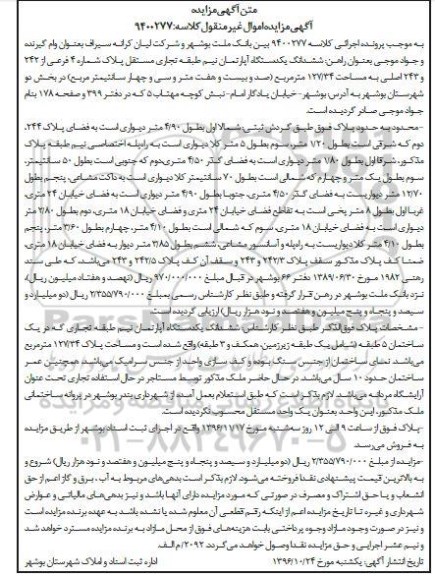 متن آگهی مزایده
آگهی مزایده اموال غیر منقول کلاسه: ۹۴۰۰۲۷۷
به موجب پرونده اجرائی کلاسه ۹۴۰۰۲۷۷ بین بانک ملت بوشهر و شرکت لیان کرانه سیراف بعنوان وام گیرنده
و جواد موجی بعنوان راهن: ششدانگ یکدستگاه آپارتمان نیم طبقه تجاری مستقل پلاک شماره ۴ فرعی از ۲۴۲
و ۲۴۳ اصلی به مساحت ۱۲۷/۳۴ مترمربع (صد و بیست و هفت متر و سی و چهار سانتیمتر مربع) در بخش دو
شهرستان بوشهر به آدرس: بوشهر- خیابان یادگار امام- نبش کوچه مهتاب ۵ که در دفتر ۳۹۹ و صفحه ۱۷۸ بنام
جواد موجی صادر گردیده است.
-محدود به حدود پلاک فوق طبق گردش ثبتی: شمالا اول بطول ۴/۹۰ متر دیواری است به فضای پلاک ۲۴۴،
دوم که شرقی است بطول ۷/۲۰ متر، سوم بطول ۵ متر کلا دیواری است به راه پله اختصاصی نیم طبقه پلاک
مذکور، شرقا اول بطول ۱/۸۰ متر دیواری است به فضای گذر ۴/۵۰ متری، دوم که جنوبی است بطول ۵۰ سانتیمتر،
سوم بطول یک متر و چهارم که شمالی است بطول ۷۰ سانتیمتر کلا دیواری است به داکت مشاعی، پنجم بطول
۱۲/۷۰ متر دیواریست به فضای گذر ۴/۵۰ متری، جنوبا بطول ۴/۹۰ متر دیواری است به فضای خیابان ۲۴ متری،
غربا اول بطول ۸ متر پخی است به تقاطع فضای خیابان ۲۴ متری و فضای خیابان ۱۸ متری، دوم بطول ۲/۸۰ متر
دیواری است به فضای خیابان ۱۸ متری، سوم که شمالی است بطول ۴/۱۰ متر، چهارم بطول ۳/۶۰ متر، پنجم
بطول ۴/۱۰ متر کلا دیواریست به راه پله و آسانسور مشاعی، ششم بطول ۳/۸۵ متر دیوار به فضای خیابان ۱۸ متری.
ضمنا کف پلاک مذکور سقف پلاک ۲۴۲/۳ و ۲۴۳ و سقف آن کف پلاک ۲۴۲/۵ و ۲۴۳ می‌باشد، که طی سند
رهنی ۱۹۸۲ مورخ ۱۳۸۹/۰۶/۳۰ دفتر ۶۶ بوشهر در قبال مبلغ ۹۷۰/۰۰۰/۰۰۰ ریال (نهصد و هفتاد میلیون ریال)،
نزد بانک ملت بوشهر در رهن قرار گرفته و طبق نظر کارشناس رسمی بمبلغ ۲/۳۵۵/۷۹۰/۰۰۰ ریال (دو میلیارد و
سیصد و پنجاه و پنج میلیون و هفتصد و نود هزار ریال) ارزیابی گردیده است.
- مشخصات پلاک فوق‌الذکر طبق نظر کارشناس: ششدانگ یکدستگاه آپارتمان نیم طبقه تجاری که در یک
ساختمان ۵ طبقه (شامل یک طبقه زیرزمین، همکف و ۳ طبقه) واقع شده است و مساحت پلاک ۱۲۷/۳۴ مترمربع
می‌باشد. نمای ساختمان از جنس سنگ بوده و کف سازی واحد از جنس سرامیک می‌باشد. همچنین عمر
ساختمان حدود ۱۰ سال می‌باشد. در حال حاضر ملک مذکور توسط مستاجر در حال استفاده تجاری تحت عنوان
آرایشگاه مردانه می‌باشد. لازم بذکر است که طبق استعلام بعمل آمده از شهرداری بندر بوشهر در پروانه ساختمانی
ملک مذکور، این واحد بعنوان یک واحد مستقل محسوب نگردیده است.
-پلاک فوق از ساعت ۹ الی ۱۲ روز سه‌شنبه مورخ ۱۳۹۶/۱۱/۱۷ واقع در اجرای ثبت اسناد بوشهر از طریق مزایده
به فروش می‌رسد.
-مزایده از مبلغ ۲/۳۵۵/۷۹۰/۰۰۰ ریال (دو میلیارد و سیصد و پنجاه و پنج میلیون و هفتصد و نود هزار ریال) شروع و
به بالاترین قیمت پیشنهادی نقدا فروخته می‌شود. لازم بذکر است بدهی‌های مربوط به آب، برق و گاز اعم از حق
انشعاب و یا حق اشتراک و مصرف در صورتی که مورد مزایده دارای آنها باشد و نیز بدهی‌های مالیاتی و عوارض
شهرداری و غیره تا تاریخ مزایده اعم از اینکه رقم قطعی آن معلوم شده یا نشده باشد به عهده برنده مزایده است
و نیز در صورت وجود مازاد وجوه پرداختی بابت هزینه‌های فوق از محل مازاد به برنده مزایده مسترد خواهد شد
و نیم عشر اجرایی و حق مزایده نقدا وصول خواهد می‌گردد. ۲۰۹۲/م الف
تاریخ انتشار آگهی: یکشنبه مورخ ۱۳۹۶/۱۰/۲۴ اداره ثبت اسناد و املاک شهرستان بوشهر